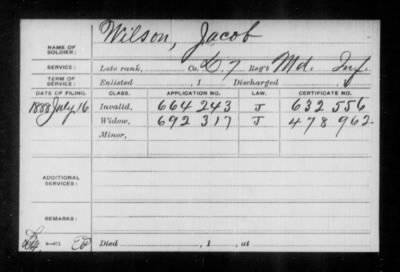 Wilson, Jacob
NAME OF SOLDIER:
SERVICE: Late rank, Co. D. 7 Reg't Md. Inf.
TERM OF SERVICE: Enlisted , 1 Discharged , 1
DATE OF FILING. CLASS. APPLICATION NO. LAW. CERTIFICATE NO.
1888 July 16 Invalid, 664243 J 632556
Widow, 692317 J 478962
Minor,
ADDITIONAL SERVICES:
REMARKS:
Died , 1 , at